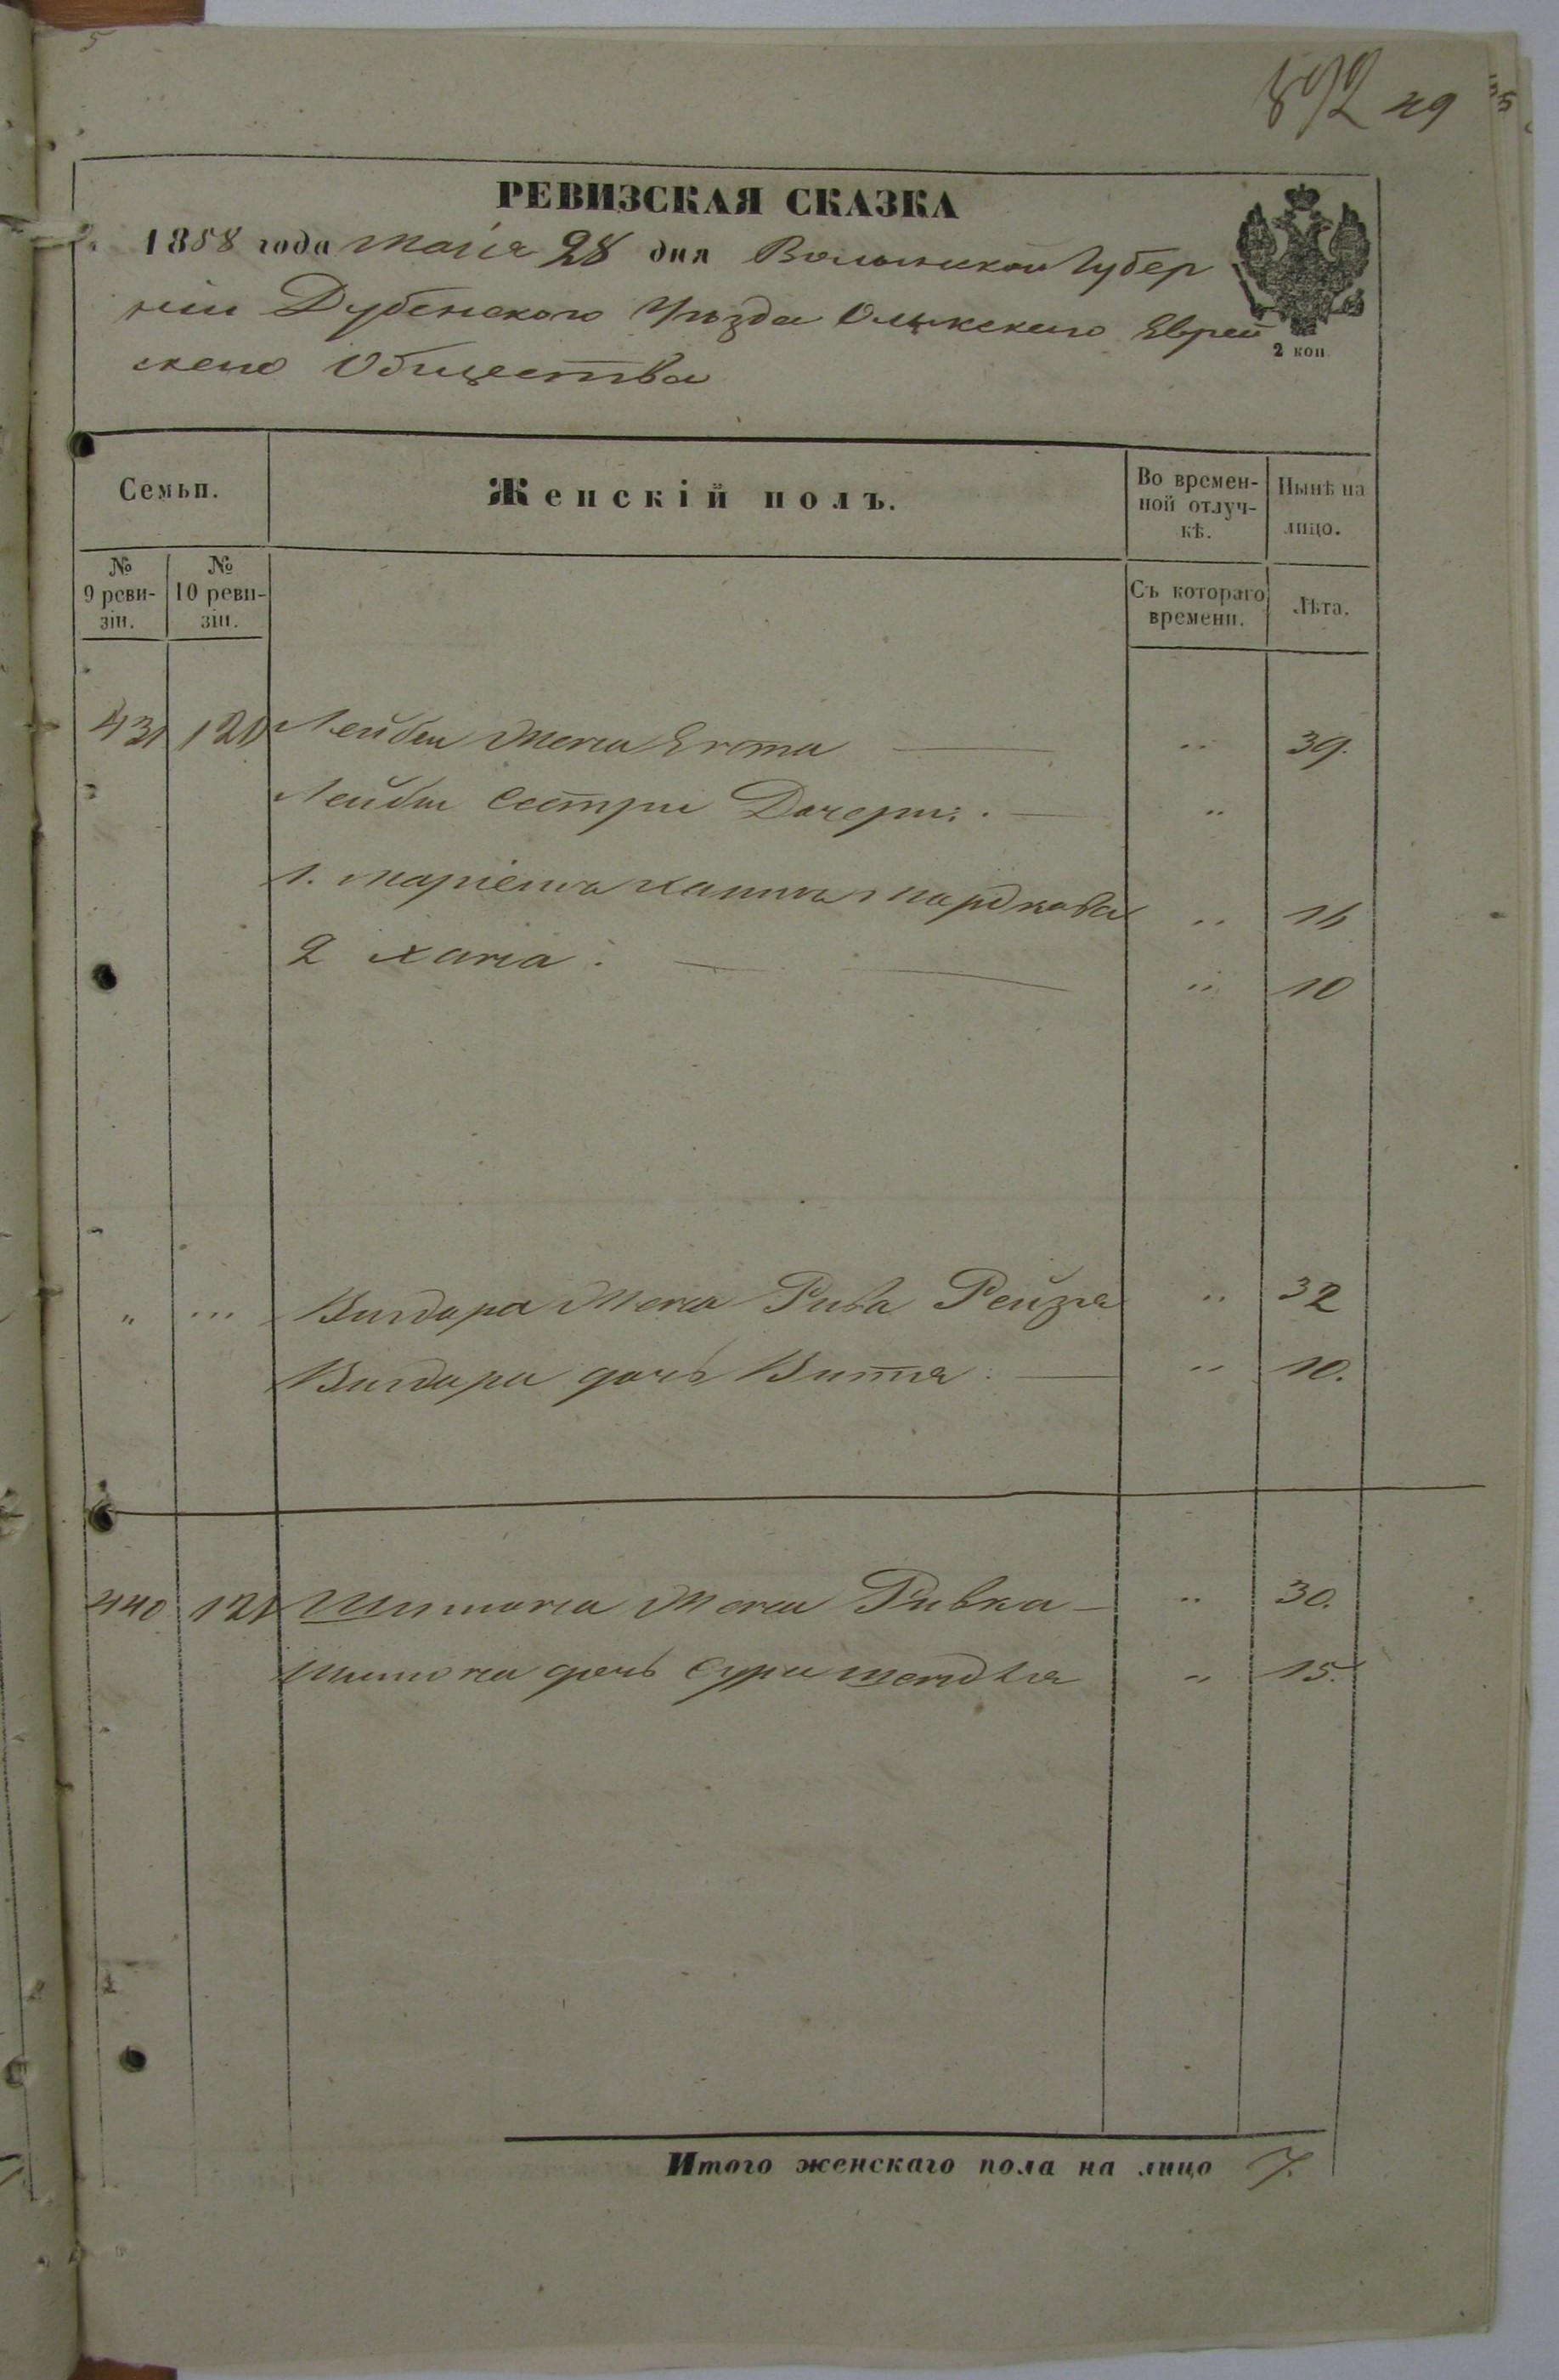 892 49
РЕВИЗСКАЯ СКАЗКА
1858 года Маія 28 дня Волынской Губер
ніи Дубенского Уѣзда Олыкского Еврей
2 коп.
ского Общества
Семьи.
Женскій полъ.
Во времен-
ной отлуч-
кѣ.
Нынѣ на
лицо.
№
9 реви-
зіи.
№
10 реви-
зіи.
Съ котораго
времени.
Лѣта.
Лейбы жена 39.
Лейбы Сестры Дочери:
1. Маріемъ Мордкова 16
2 Хана. 10
" Вигдора жена Рива Рейзя " 32
Вигдора дочь Витля " 10.
440 121 жена Ривка " 30.
дочь Сура Шендля " 15.
Итого женскаго пола на лицо 7.